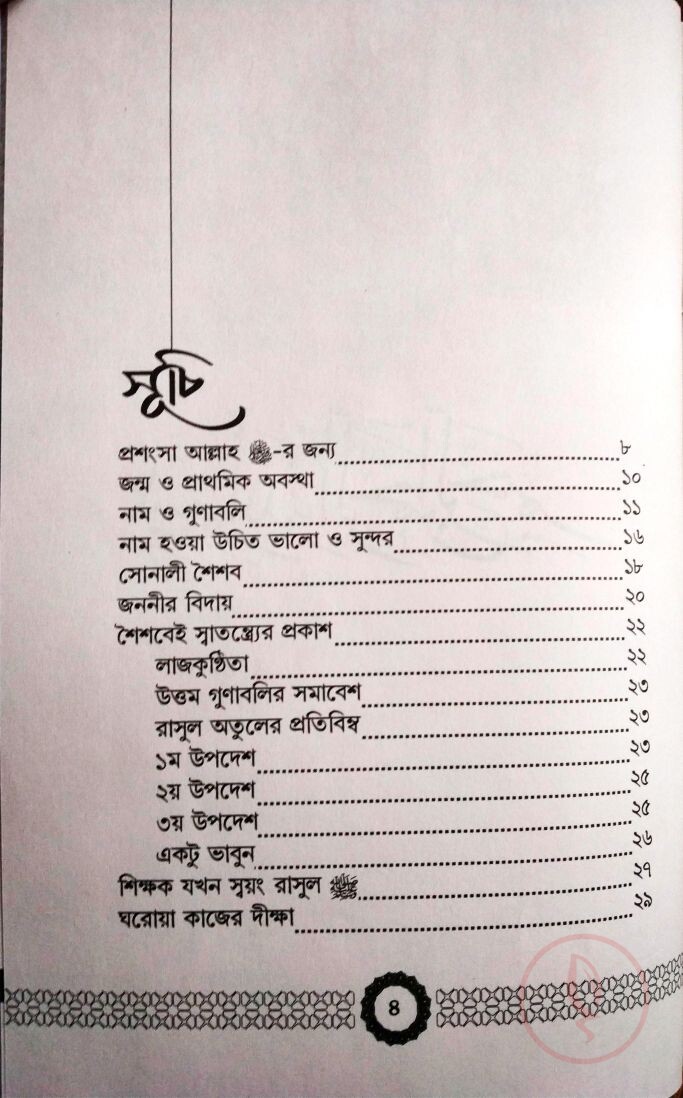 সূচি
প্রশংসা আল্লাহ ﷻ-র জন্য ৮
জন্ম ও প্রাথমিক অবস্থা ১০
নাম ও গুণাবলি ১১
নাম হওয়া উচিত ভালো ও সুন্দর ১৬
সোনালী শৈশব ১৮
জননীর বিদায় ২০
শৈশবেই স্বাতন্ত্র্যের প্রকাশ ২২
লাজকুণ্ঠিতা ২২
উত্তম গুণাবলির সমাবেশ ২৩
রাসুল অতুলের প্রতিবিম্ব ২৩
১ম উপদেশ ২৩
২য় উপদেশ ২৫
৩য় উপদেশ ২৫
একটু ভাবুন ২৬
শিক্ষক যখন স্বয়ং রাসুল ﷺ ২৭
ঘরোয়া কাজের দীক্ষা ২৯
৪